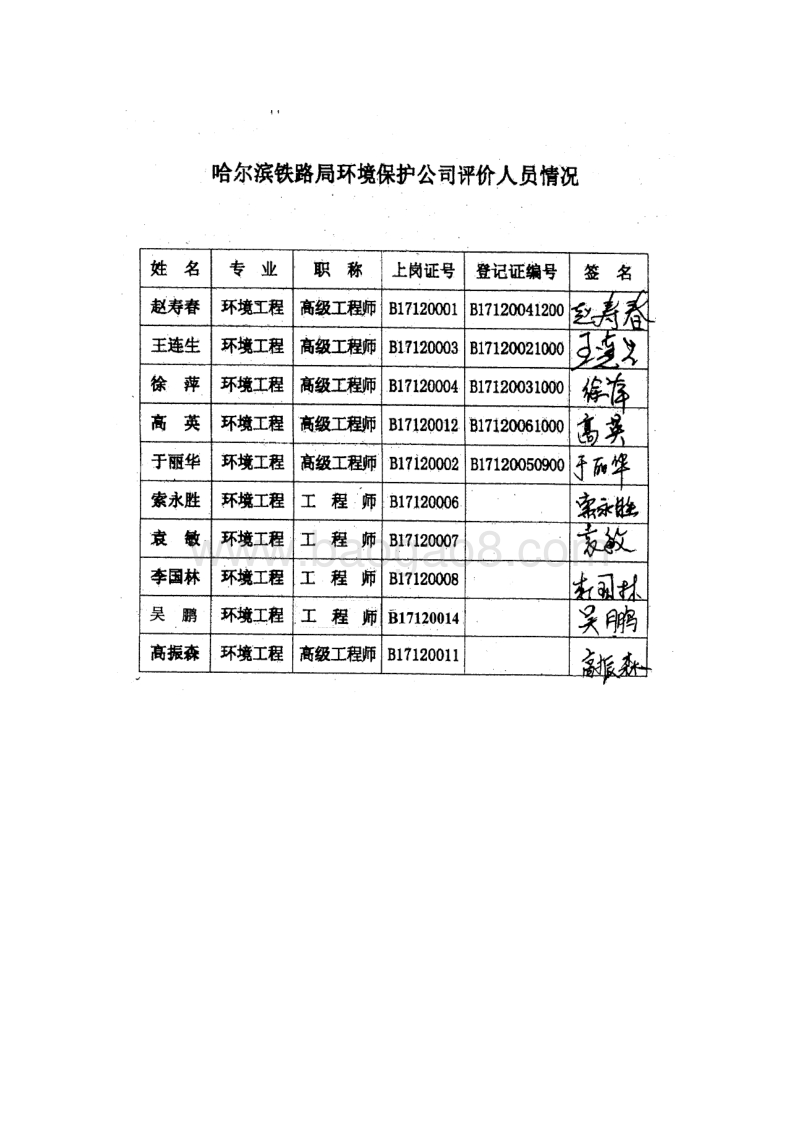 哈尔滨铁路局环境保护公司评价人员情况
姓 名 专 业 职 称 上岗证号 登记证编号 签 名
赵寿春 环境工程 高级工程师 B17120001 B17120041200 赵寿春
王连生 环境工程 高级工程师 B17120003 B17120021000 王连生
徐 萍 环境工程 高级工程师 B17120004 B17120031000 徐萍
高 英 环境工程 高级工程师 B17120012 B17120061000 高英
于丽华 环境工程 高级工程师 B17120002 B17120050900 于丽华
索永胜 环境工程 工 程 师 B17120006 索永胜
袁 敏 环境工程 工 程 师 B17120007 袁敏
李国林 环境工程 工 程 师 B17120008 李国林
吴 鹏 环境工程 工 程 师 B17120014 吴鹏
高振森 环境工程 高级工程师 B17120011 高振森
www.baogao8.com